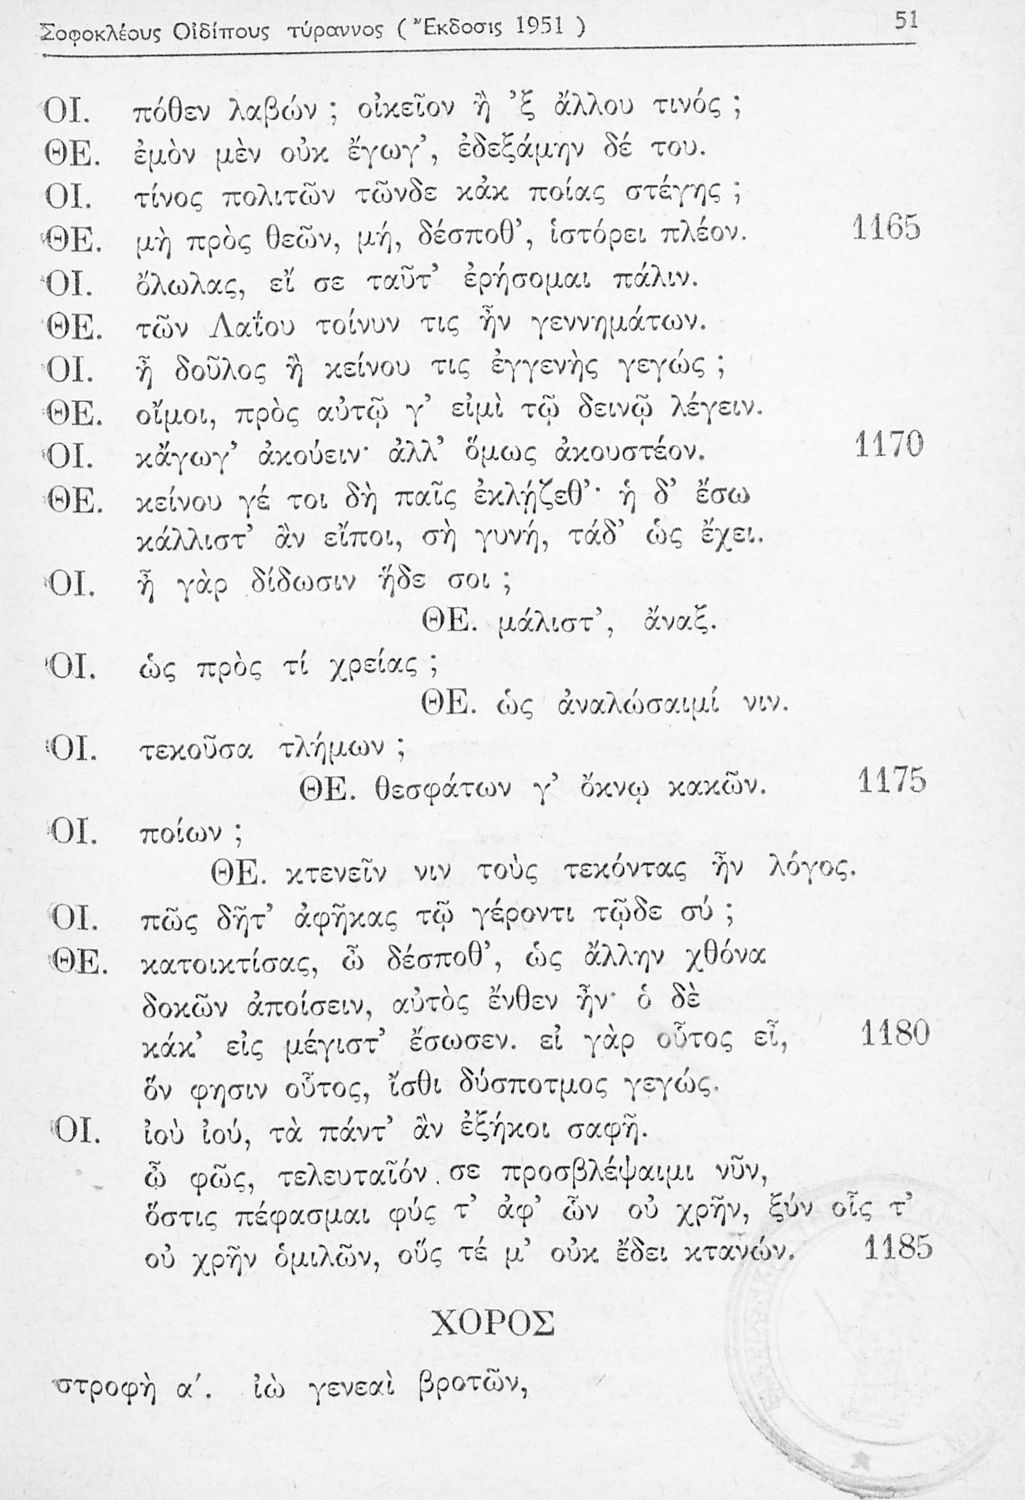 Σοφοκλέους Οἰδίπους τύραννος ( Ἔκδοσις 1951 ) 51
ΟΙ. πόθεν λαβών ; οἰκεῖον ἢ ’ξ ἄλλου τινός ;
ΘΕ. ἐμὸν μὲν οὐκ ἔγωγ’, ἐδεξάμην δέ του.
ΟΙ. τίνος πολιτῶν τῶνδε κἀκ ποίας στέγης ;
ΘΕ. μὴ πρὸς θεῶν, μή, δέσποθ’, ἱστόρει πλέον. 1165
ΟΙ. ὄλωλας, εἴ σε ταῦτ’ ἐρήσομαι πάλιν.
ΘΕ. τῶν Λαΐου τοίνυν τις ἦν γεννημάτων.
ΟΙ. ἦ δοῦλος ἢ κείνου τις ἐγγενὴς γεγώς ;
ΘΕ. οἴμοι, πρὸς αὐτῷ γ’ εἰμὶ τῷ δεινῷ λέγειν.
ΟΙ. κἄγωγ’ ἀκούειν· ἀλλ’ ὅμως ἀκουστέον. 1170
ΘΕ. κείνου γέ τοι δὴ παῖς ἐκλῄζεθ’· ἡ δ’ ἔσω
κάλλιστ’ ἂν εἴποι, σὴ γυνή, τάδ’ ὡς ἔχει.
ΟΙ. ἦ γὰρ δίδωσιν ἥδε σοι ;
ΘΕ. μάλιστ’, ἄναξ.
ΟΙ. ὡς πρὸς τί χρείας ;
ΘΕ. ὡς ἀναλώσαιμί νιν.
ΟΙ. τεκοῦσα τλήμων ;
ΘΕ. θεσφάτων γ’ ὄκνῳ κακῶν. 1175
ΟΙ. ποίων ;
ΘΕ. κτενεῖν νιν τοὺς τεκόντας ἦν λόγος.
ΟΙ. πῶς δῆτ’ ἀφῆκας τῷ γέροντι τῷδε σύ ;
ΘΕ. κατοικτίσας, ὦ δέσποθ’, ὡς ἄλλην χθόνα
δοκῶν ἀποίσειν, αὐτὸς ἔνθεν ἦν· ὁ δὲ
κάκ’ εἰς μέγιστ’ ἔσωσεν. εἰ γὰρ οὗτος εἶ, 1180
ὅν φησιν οὗτος, ἴσθι δύσποτμος γεγώς.
ΟΙ. ἰοὺ ἰού, τὰ πάντ’ ἂν ἐξήκοι σαφῆ.
ὦ φῶς, τελευταῖόν σε προσβλέψαιμι νῦν,
ὅστις πέφασμαι φύς τ’ ἀφ’ ὧν οὐ χρῆν, ξύν οἷς τ’
οὐ χρῆν ὁμιλῶν, οὕς τέ μ’ οὐκ ἔδει κτανών. 1185
ΧΟΡΟΣ
στροφὴ α΄. ἰὼ γενεαὶ βροτῶν,